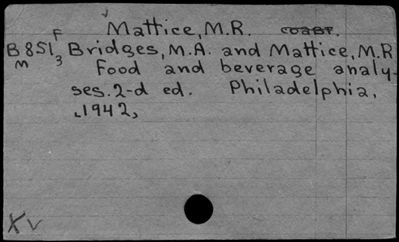 Mattice, M.R. coавт.
B851 F3 Bridges, M.A. and Mattice, M.R
m Food and beverage analy-
ses. 2-d ed. Philadelphia,
1942,